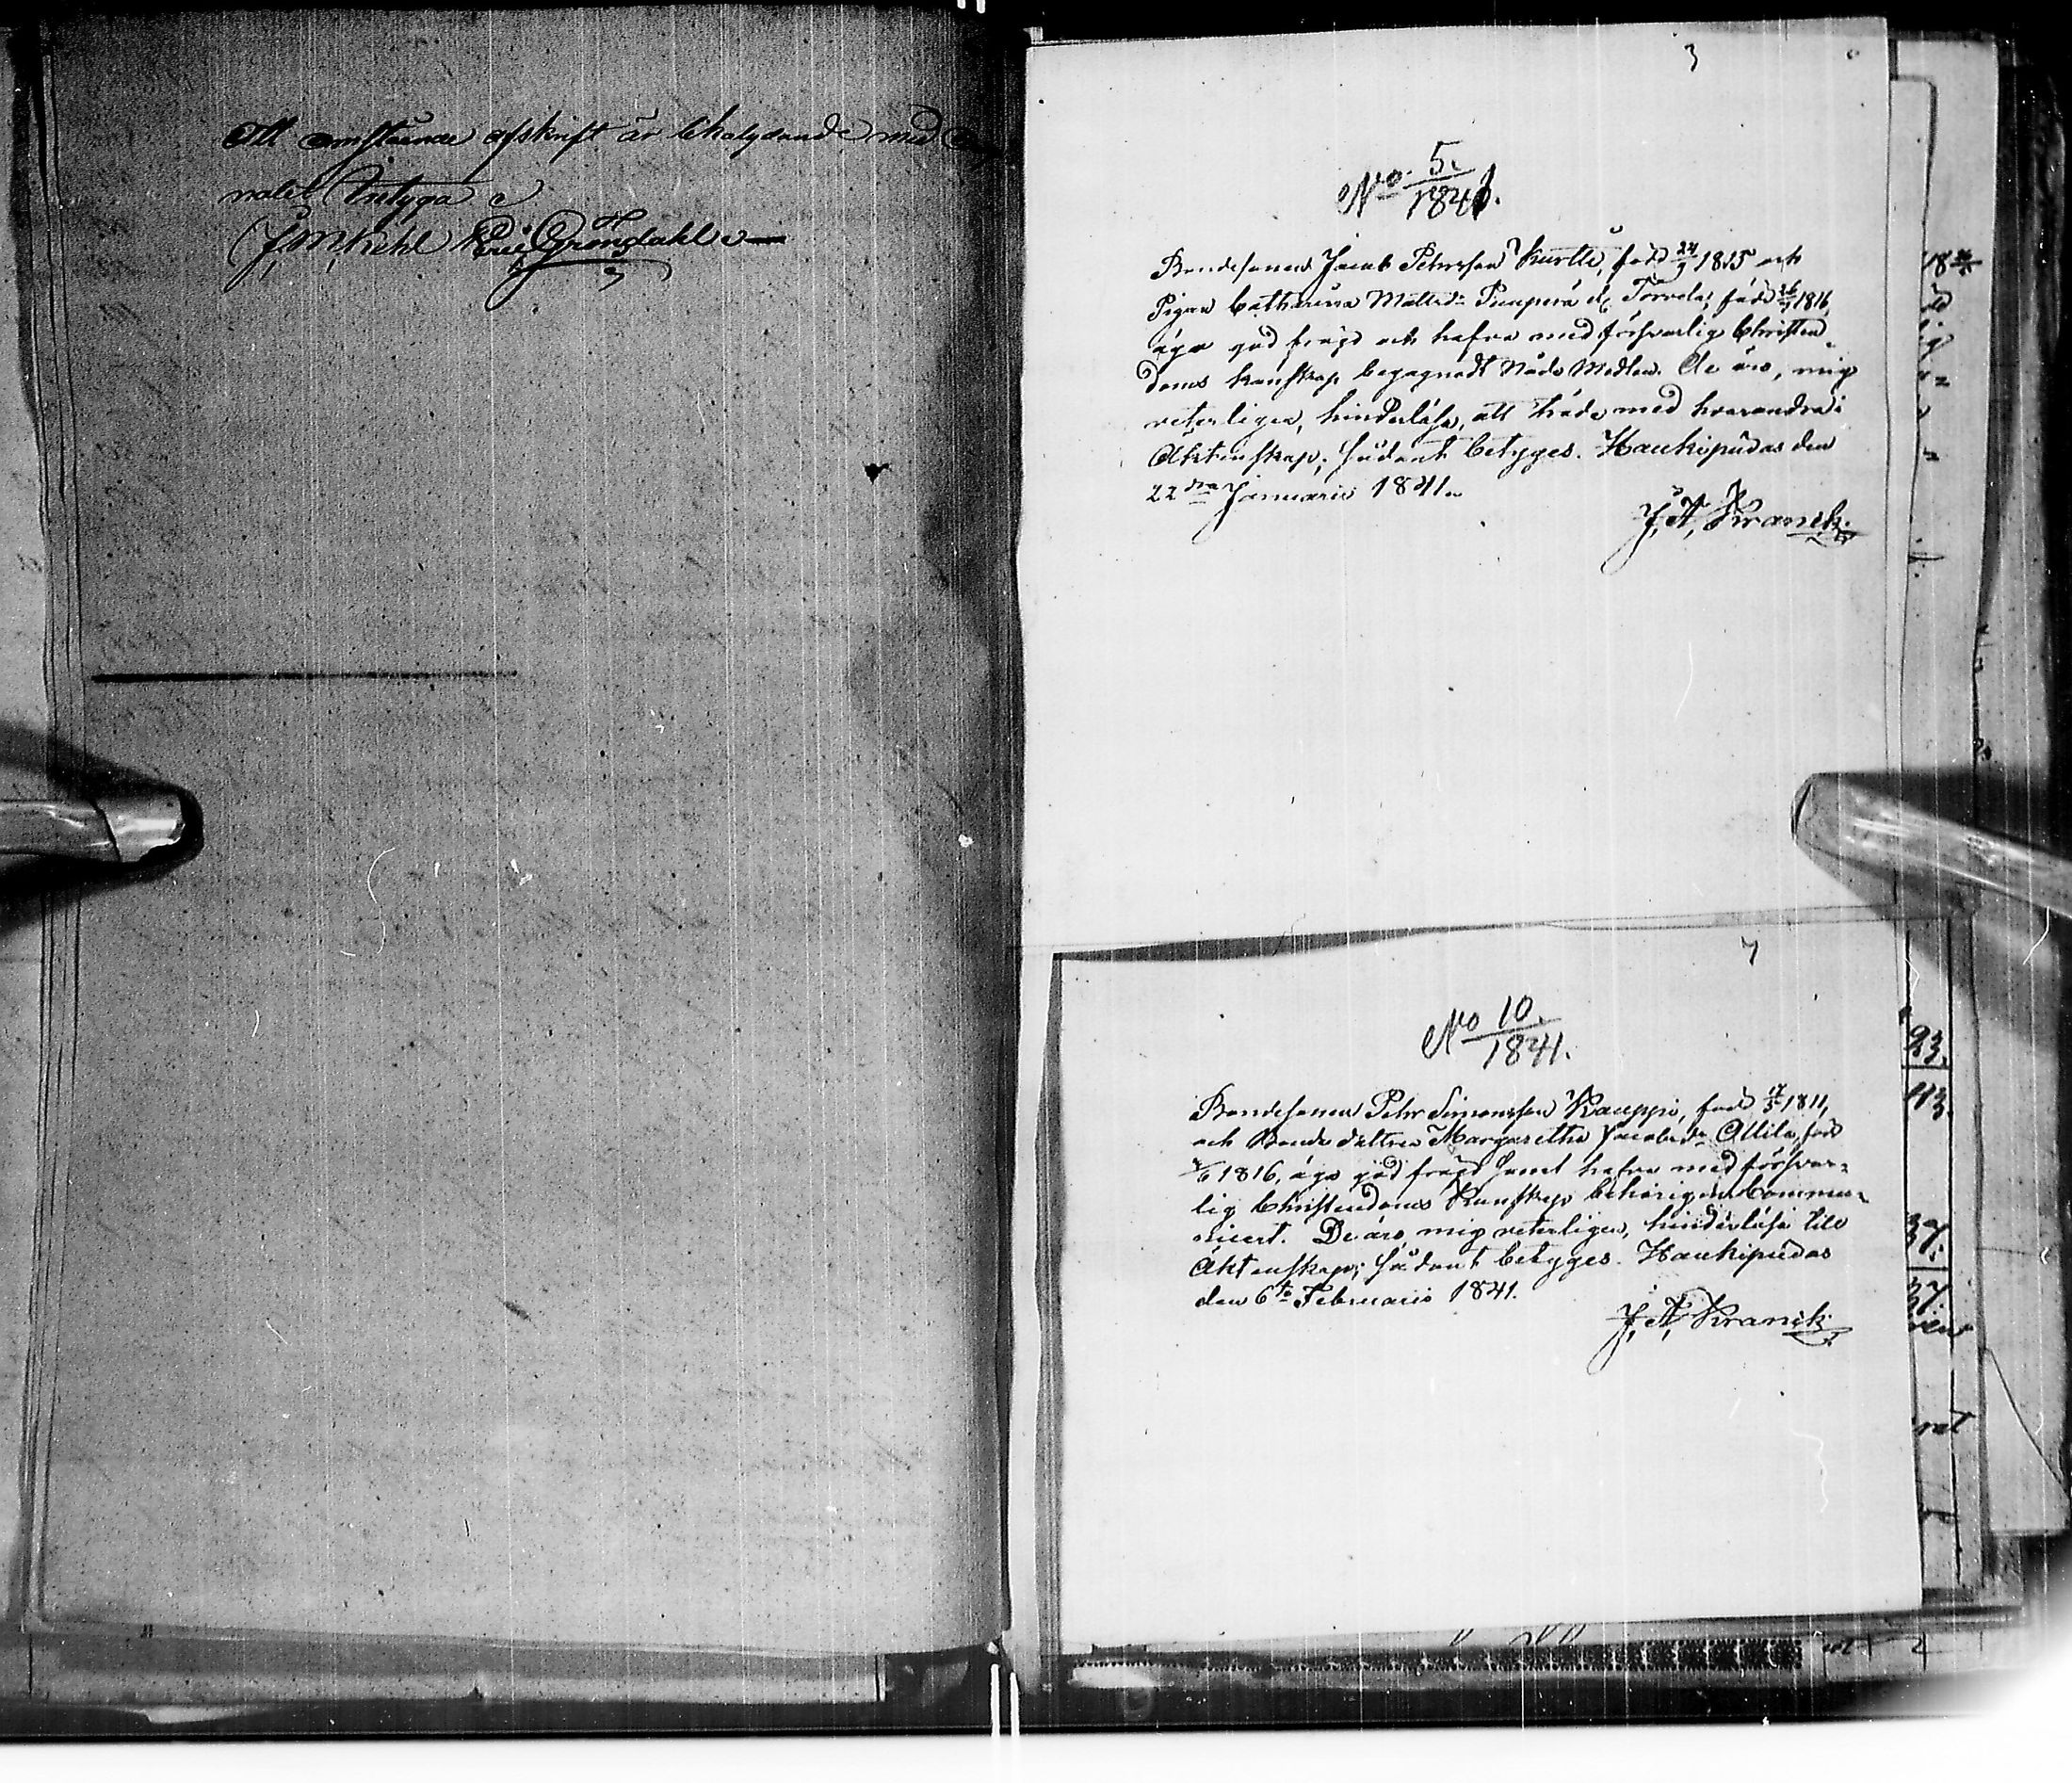 Att omstående afskrift är likalydande med
nalet Intyga
J, M, Kehl Eric Gröndahl
3
No. 5.
1841.
Bondesonen Jacob Pehrsson Kurtti, född 24/9 1815 och
Pigan Catharina Mattsdr Tauperä el. Torvela, född 26/9 1816,
äga god frägd och hafva med försvarlig Christen-
doms kunskap begagnadt Nåde Medlen. De äro, mig
veterligen, hinderlösa, att träda med hvarandra i
Äktenskap; sådant betyges. Haukipudas den
22dra Januarii 1841.
J, A, Kranck.
7
No 10.
1841.
Bondesonen Pehr Simonsson Kauppi, född 17/5 1811,
och Bonde dottren Margaretha Jacobsdr Ollila, född
/6 1816, äga god frägd samt hafva med försvar-
lig Christendoms Kunskap behörigen Commu-
nicert. De äro, mig veterligen, hinderlösa till
Äktenskap; sådant betyges. Haukipudas
den 6te Februarii 1841.
J, A, Kranck.
23.
113.
37.
37.